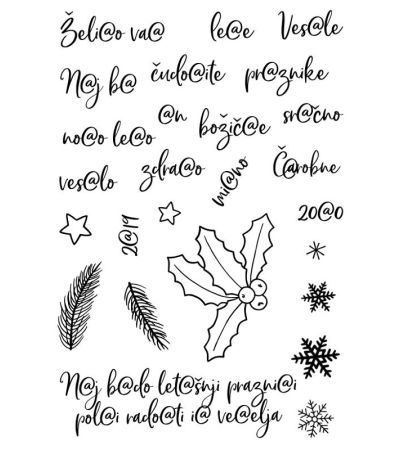 Želi@o va@ le@e Ves@le
N@j b@ čudo@ite pr@znike
@n božič@e sr@čno
no@o le@o
ves@lo zdra@o mi@no Č@robne
2@19 20@0
N@j b@do let@šnji prazni@i
pol@i rado@ti i@ ve@elja